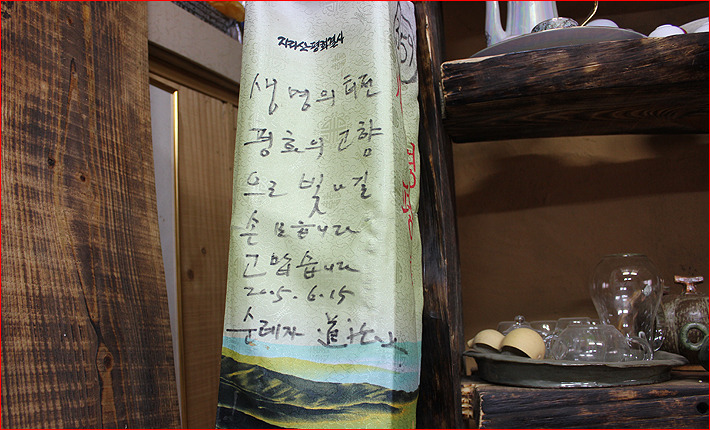 지리산평화결사
생명의 터전
평화의 고향
으로 빛나길
손 모읍니다
고맙습니다
2005. 6. 15
순례자 道
59